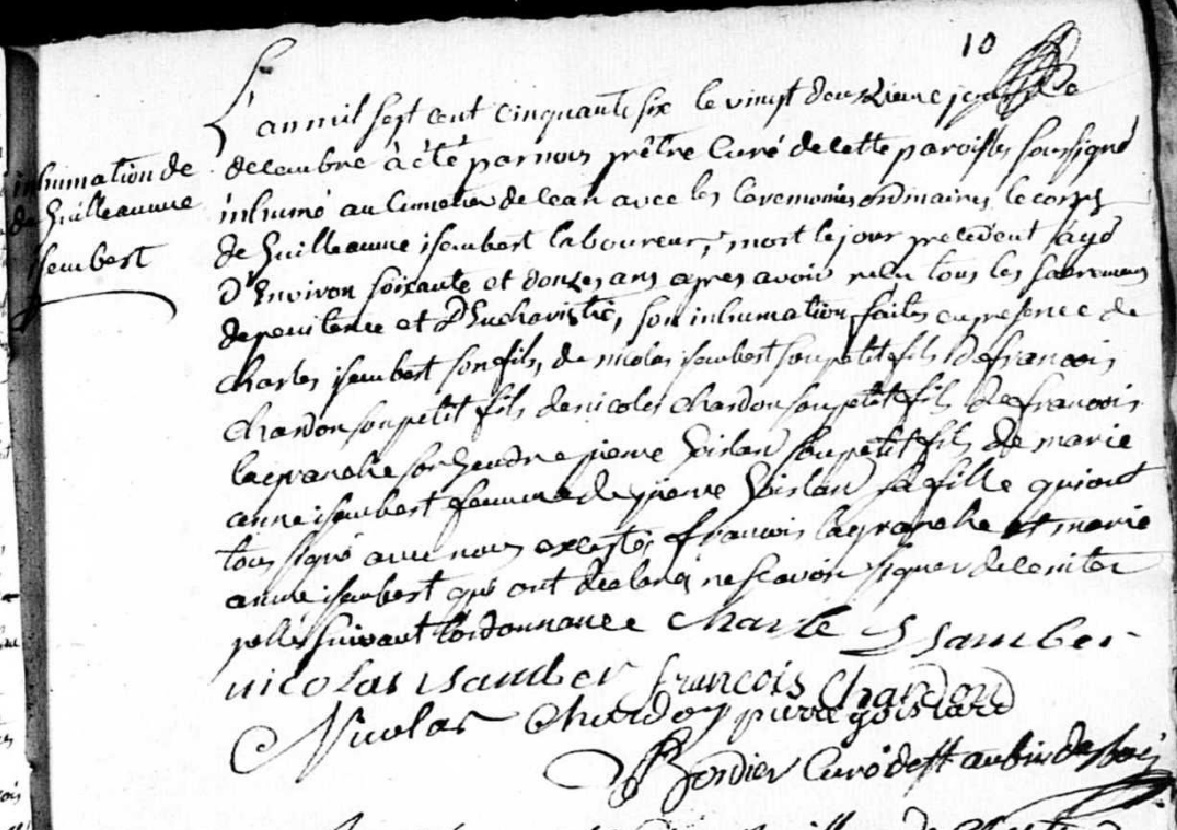 10
L'an mil sept cent cinquante six le vingt deuxieme jour de
inhumation de
de Guilleaume
isembert
decembre à été par nous prêtre Curé de cette paroisse soussigné
inhumé au Cimetiere de cean avec les Ceremonies ordinaires le corps
de Guilleaume isembert laboureur, mort le jour precedent agé
D'Environ soixante et douzes ans apres avoir recu tous les sacremens
de penitence et D'Eucharistie, son inhumation faites en presence de
charles isembert son fils, de nicolas isembert son petit fils De francois
chardon son petit fils de nicolas chardon son petit fils de francois
lagranche son Gendre pierre Goislard son petit fils De marie
anne isembert femme de pierre Goislard sa fille qui ont
tous signé avec nous excepté francois lagranche et marie
anne isembert qui ont declaré ne scavoir signer de ce
suivant l'ordonnance charle Isamber
nicolas isamber francois Chardon
Nicolas Chardon pierre goislard
Bordier Curé de st aubin des bois